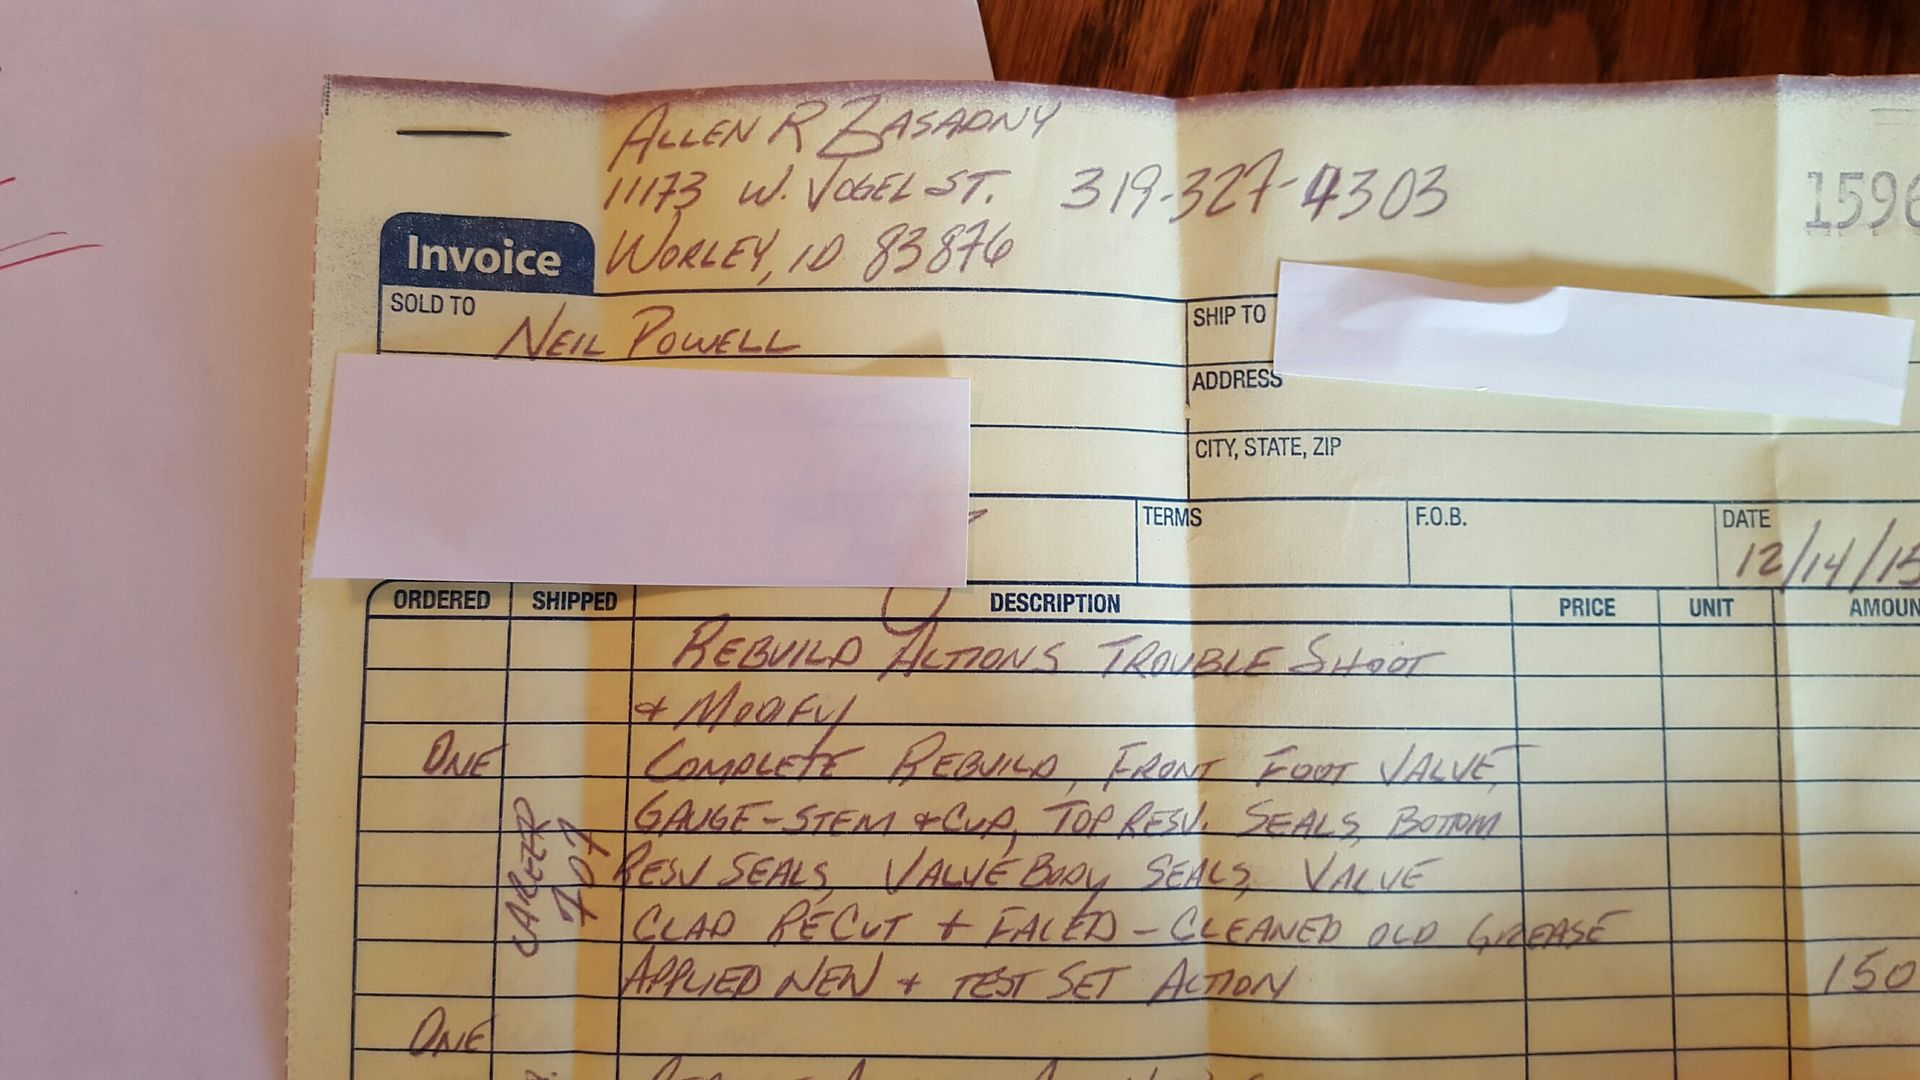 ALLEN R ZASADNY
11173 W. VOGEL ST. 319-327-4303
1596
WORLEY, ID 83876
Invoice
SOLD TO
NEIL POWELL
SHIP TO
ADDRESS
CITY, STATE, ZIP
TERMS
F.O.B.
DATE
12/14/15
ORDERED SHIPPED DESCRIPTION PRICE UNIT AMOUN
REBUILD ACTIONS TROUBLE SHOOT
& MODIFY
ONE COMPLETE REBUILD, FRONT FOOT VALVE,
GAUGE-STEM & CUP, TOP RESV. SEALS, BOTTOM
CAREER 707
RESV SEALS, VALVE BODY SEALS, VALVE
CLAD RECUT & FACED - CLEANED OLD GREASE
APPLIED NEW & TEST SET ACTION 150
ONE